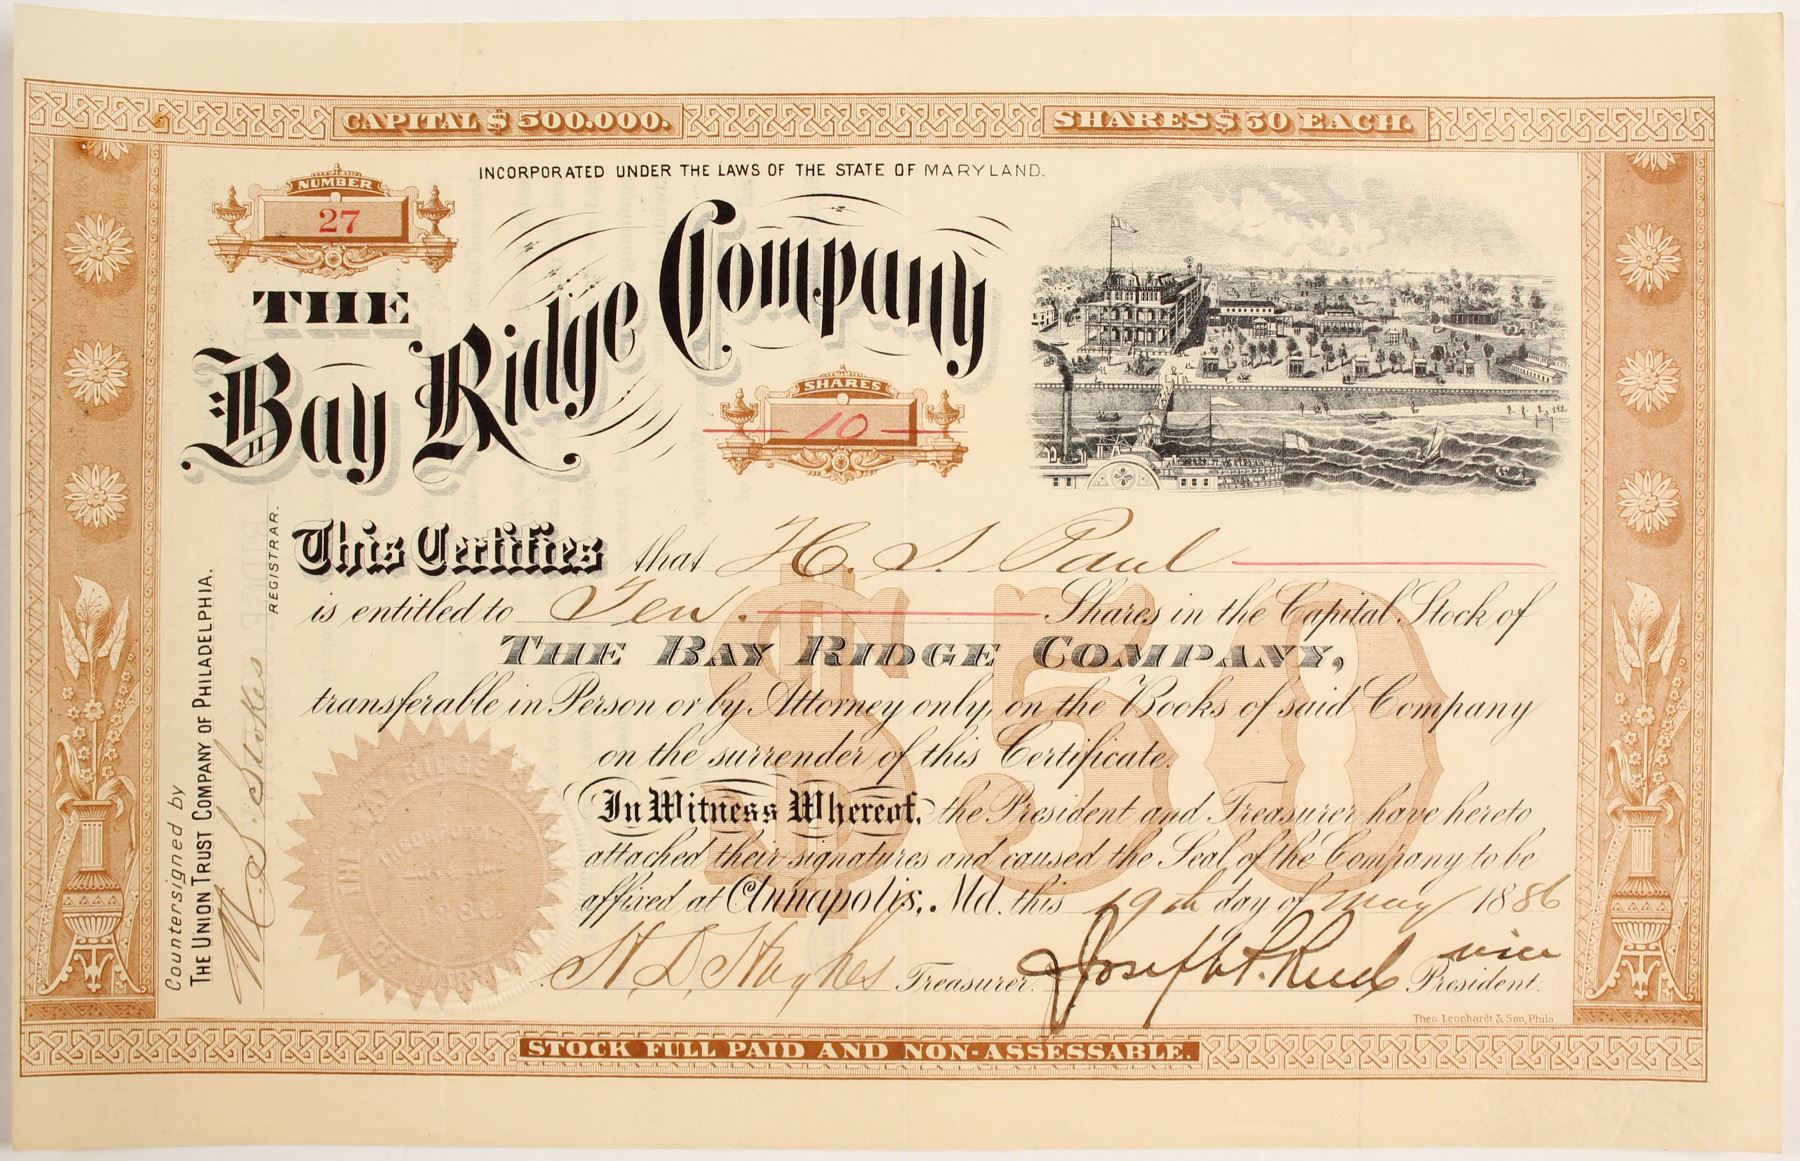 CAPITAL $500.000.
SHARES $50 EACH.
INCORPORATED UNDER THE LAWS OF THE STATE OF MARYLAND.
NUMBER
27
THE
Bay Ridge Company
SHARES
10
This Certifies that H. S. Paul
is entitled to Ten. Shares in the Capital Stock of
THE BAY RIDGE COMPANY,
transferable in Person or by Attorney only, on the Books of said Company
on the surrender of this Certificate.
In Witness Whereof, the President and Treasurer have hereto
attached their signatures and caused the Seal of the Company to be
affixed at Annapolis, Md. this 19th day of May 1886
Treasurer. vice
President.
Countersigned by
THE UNION TRUST COMPANY OF PHILADELPHIA.
Stokes
REGISTRAR.
$50
Theo. Leonhardt & Son, Phila.
STOCK FULL PAID AND NON-ASSESSABLE.